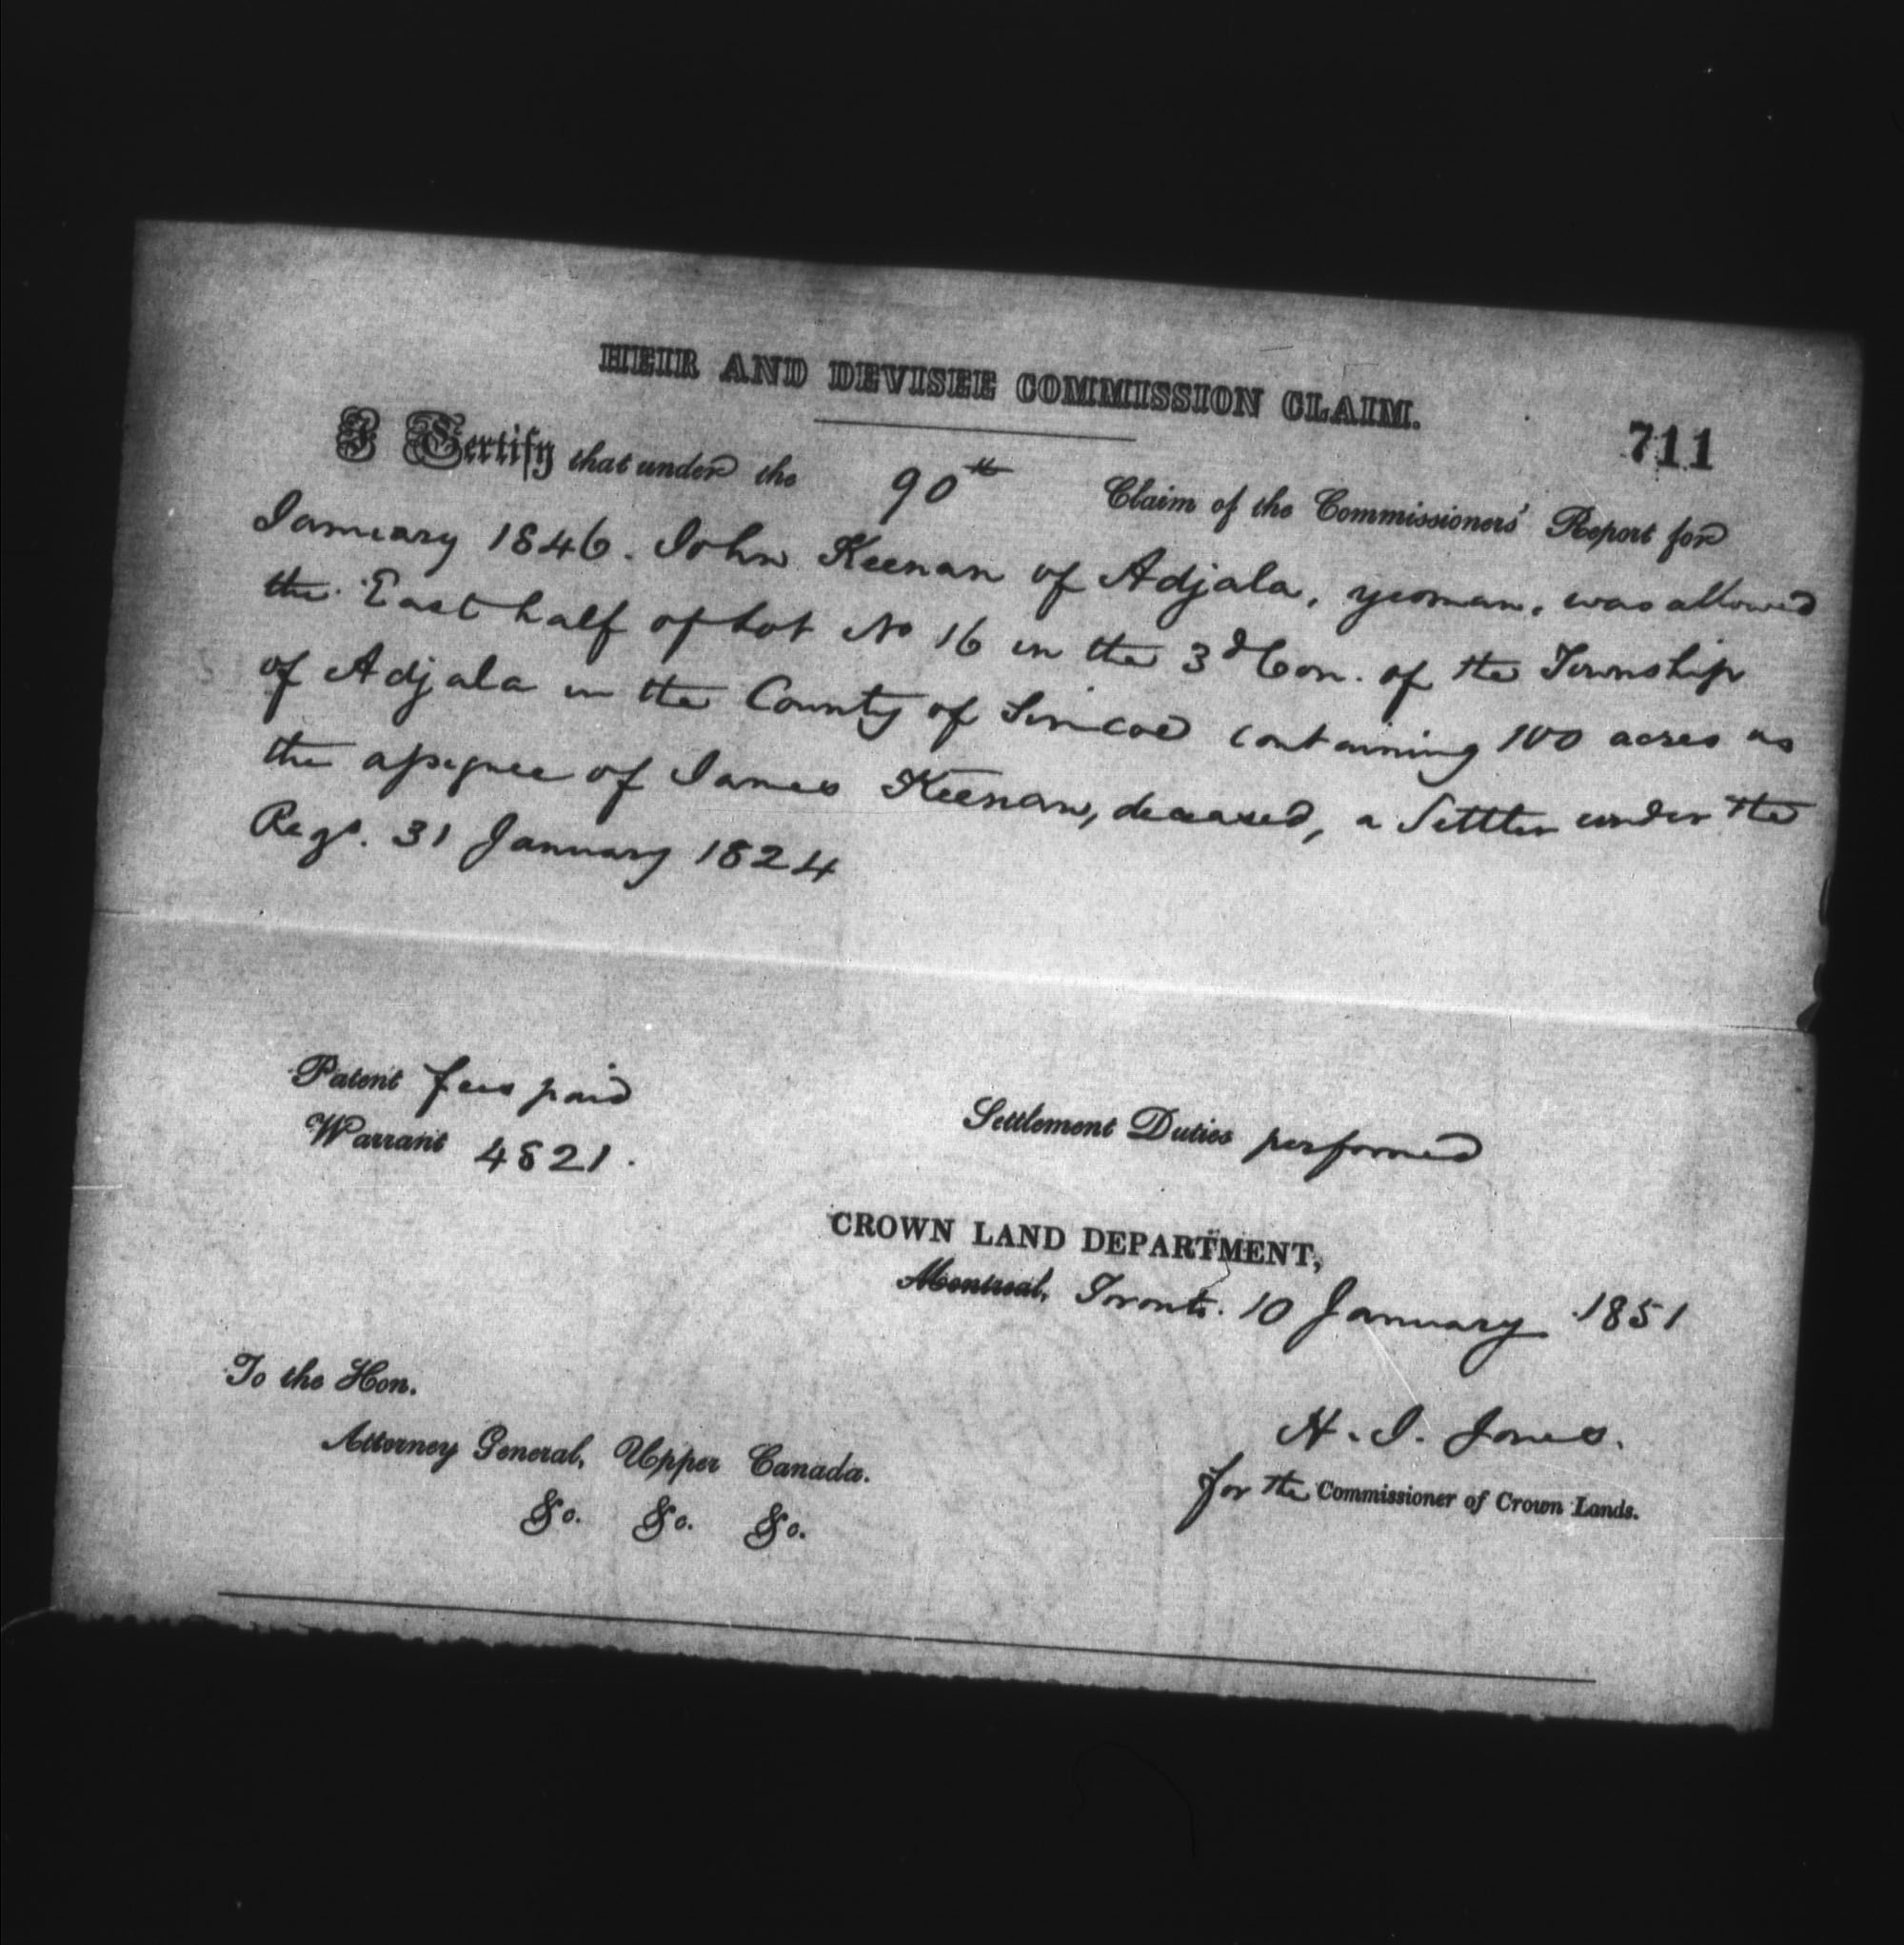 HEIR AND DEVISEE COMMISSION CLAIM.
711
I Certify that under the 90th Claim of the Commissioners' Report for
January 1846. John Keenan of Adjala, yeoman, was allowed
the East half of Lot No 16 in the 3d Con. of the Township
of Adjala in the County of Simcoe containing 100 acres as
the assignee of James Keenan, deceased, a Settler under the
Regs. 31 January 1824
Patent fees paid
Settlement Duties performed
Warrant 4821.
CROWN LAND DEPARTMENT,
Montreal, Toronto. 10 January 1851
To the Hon.
Attorney General, Upper Canada.
&c. &c. &c.
H. J. Jones.
for the Commissioner of Crown Lands.